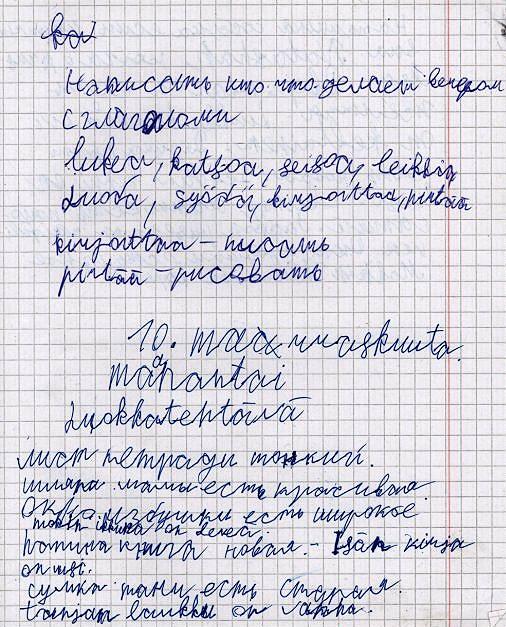 Написать кто что делает вечером
с глаголами
lukea, katsoa, seisoa, leikkiä
juoda, syödä, kirjoittaa, piirtää
kirjoittaa – писать
piirtää – рисовать
10. marraskuuta.
maanantai
Luokkatehtävä
лист тетради тонкий.
мамы есть красивая
Окно избушки есть широкое.
mökin ikkuna on leveä.
папина книга новая. – Isän kirja
on uusi.
сумка тани есть старая.
tanjan laukku on vanha.